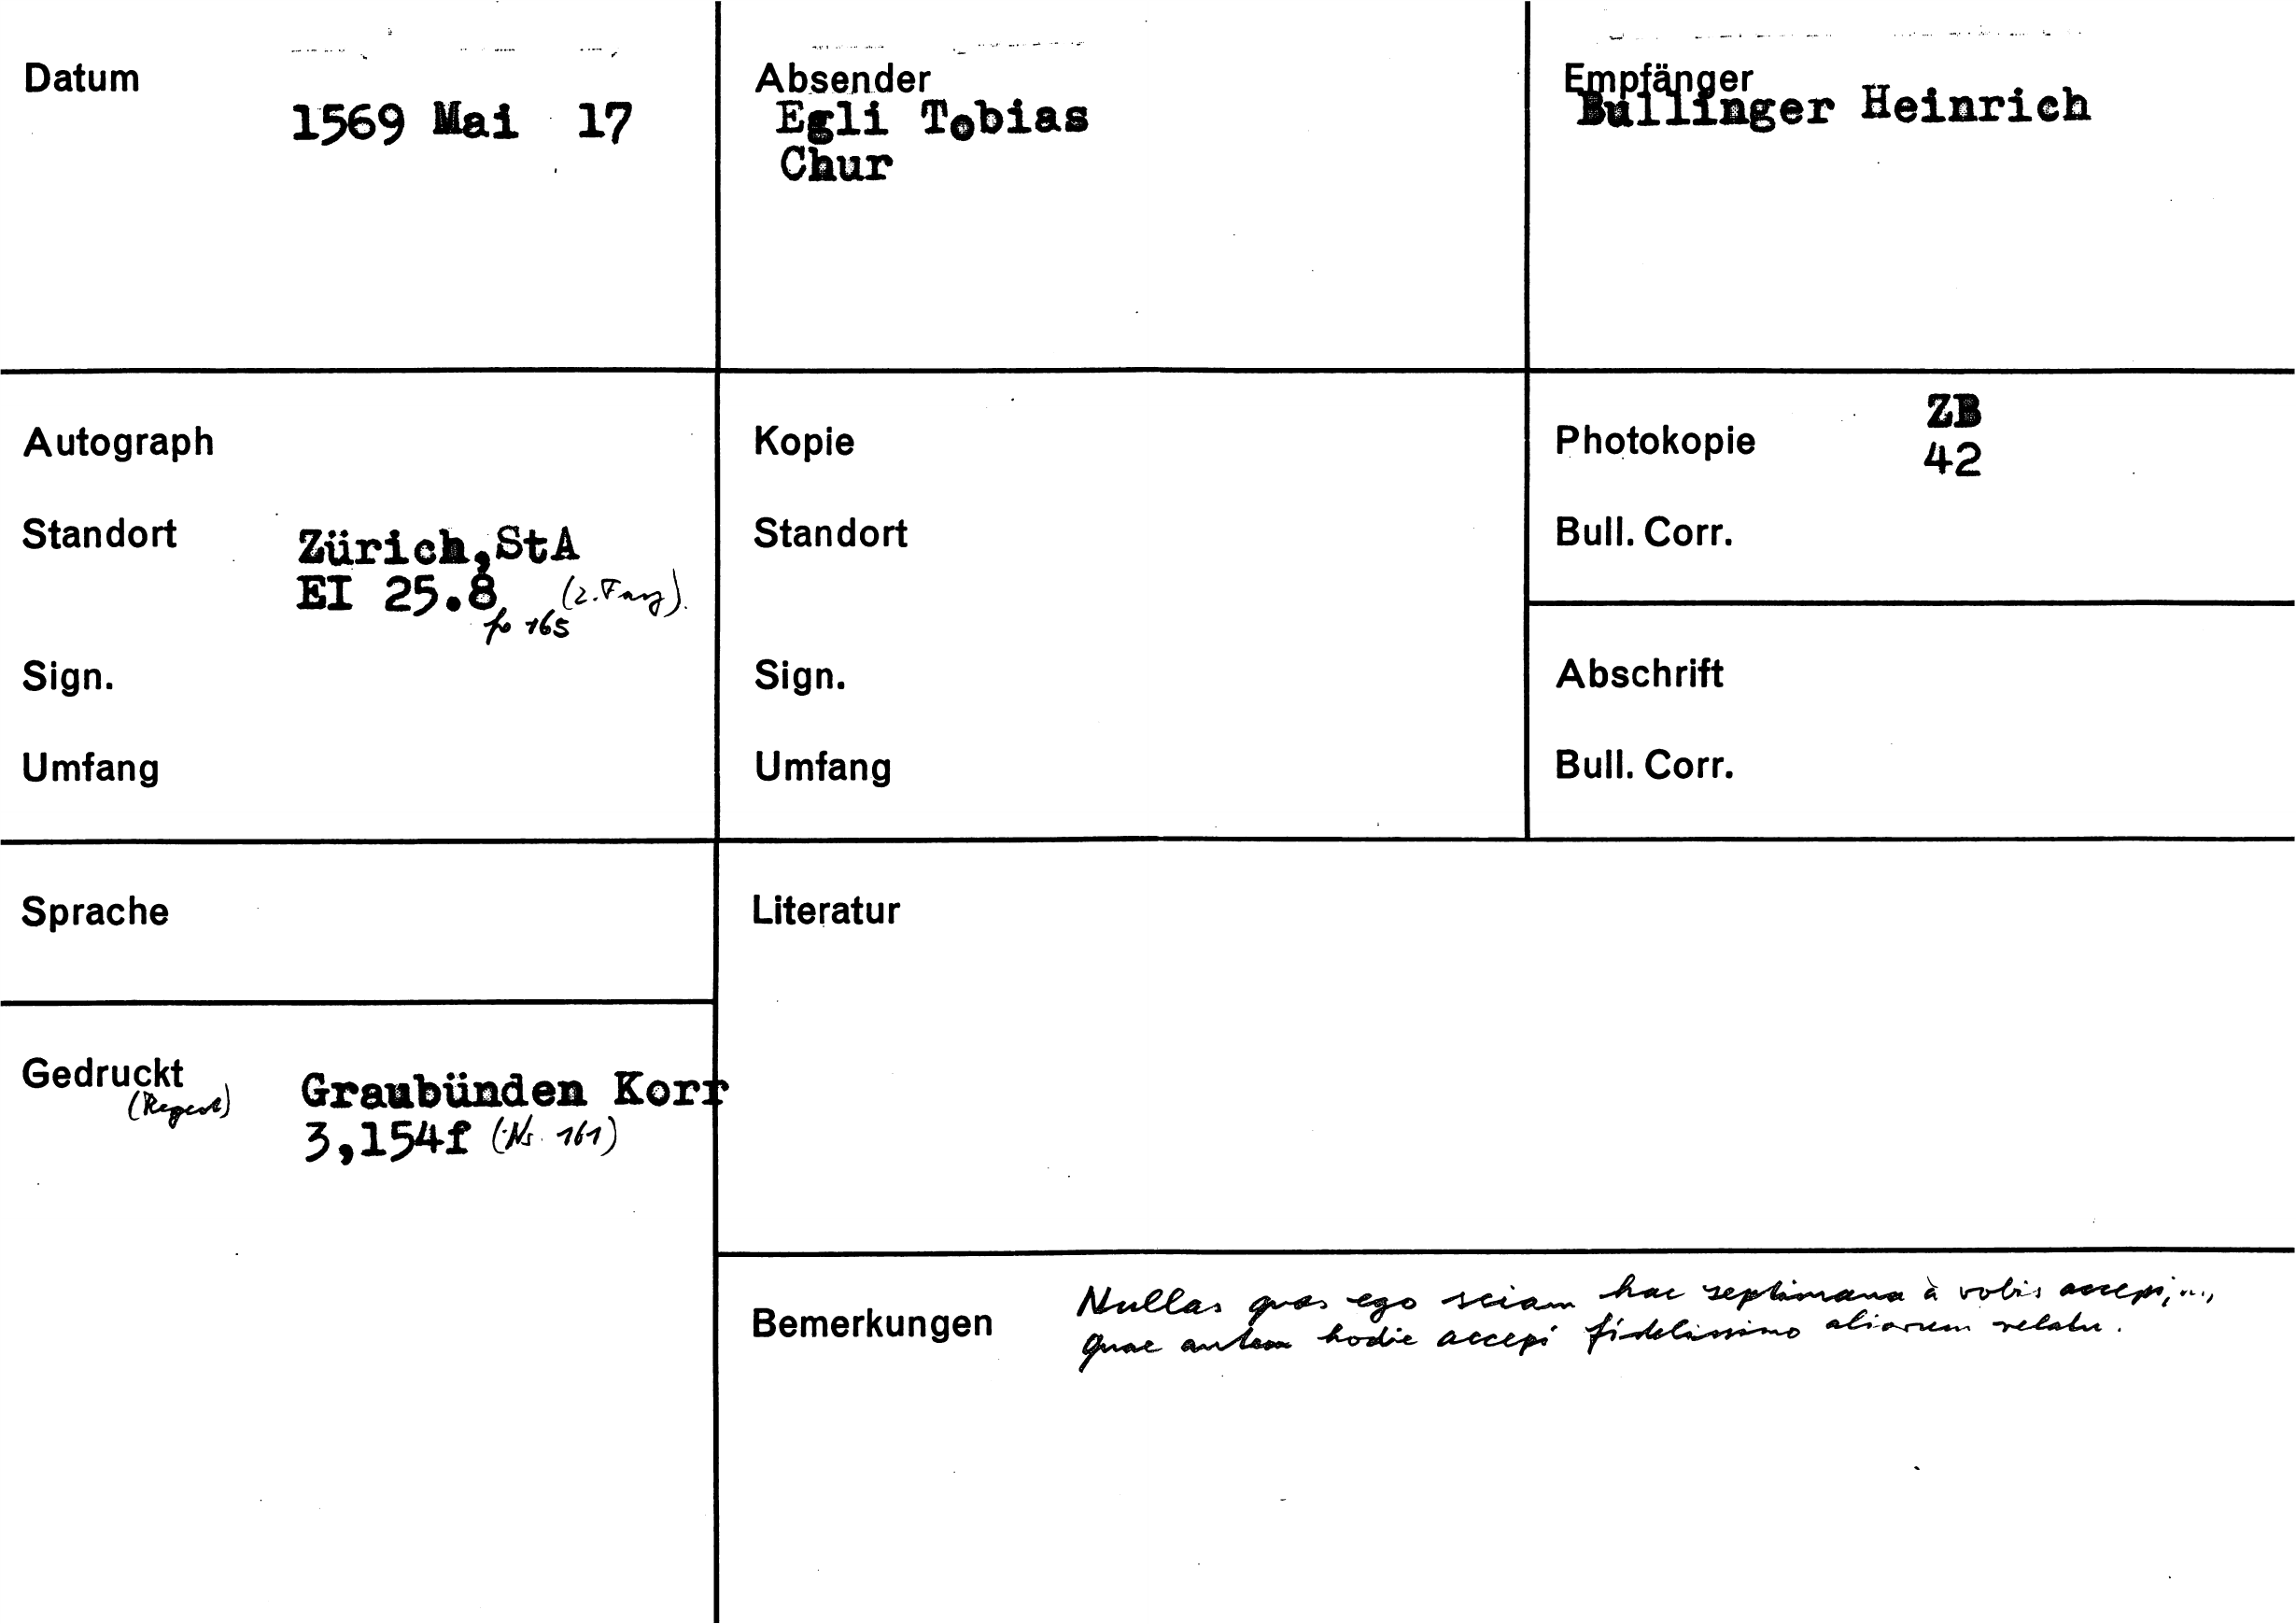 Datum
1569 Mai 17
Absender
Egli Tobias
Chur
Empfänger
Bullinger Heinrich
Autograph
Standort
Zürich,StA
EI 25.8 (2. Fasz).
fo 165
Sign.
Umfang
Kopie
Standort
Sign.
Umfang
Photokopie
ZB
42
Bull. Corr.
Abschrift
Bull. Corr.
Sprache
Literatur
Gedruckt
(Regest)
Graubünden Korr
3,154f (Nr. 161)
Bemerkungen
Nullas quas ego sciam hac septimana à vobis accepi, ...,
quae autem hodie accepi fidelissimo aliorum relatu.